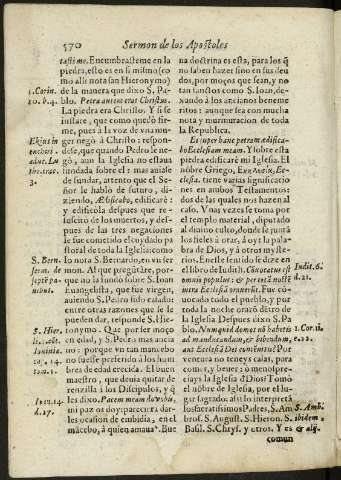 570 Sermon de los Apostoles
tastime. Encumbrasteme en la
piedra, esto es en si mismo (co
mo alli nota san Hieronymo)
1. Corin. 10. b. 4.
de la manera que dixo S. Pa-
blo. Petra autem erat Christus.
La piedra era Christo. Y si es
tan
fir
me, pues à la voz de vna mu-
ger negò à Christo: respon-
dese, que quando Pedro le ne-
gò, aun la Iglesia no estaua
fundada sobre el: mas auiase
de fundar, atento que el Se-
ñor le hablò de futuro, di-
ziendo, Ædificabo, edificarè:
y edificola despues que re-
suscitò de los muertos, y des-
pues de las tres negaciones
le fue cometido el cuydado pa
storal de toda la Iglesia: como
S. Bern.
lo nota S. Bernardo, en vn ser
mon. Al que pregũtàre, por-
que no la fundò sobre S. Iuan
Euangelista, que fue virgen,
auiendo S. Pedro sido casado:
entre otras razones que se le
pueden dar, responde S. Hie-
S. Hier.
ronymo. Que por ser moço
en edad, y S. Pedro mas ancia
no: porque vn tan mancebo
no fuesse preferido à los hom
bres de edad crecida. El buen
maestro, que deuia quitar de
renzilla à los Discipulos, y q̃
les dixo. Pacem meam do vobis,
Ioan. 14. d. 27.
mi paz os doy: pareciera dar-
les ocasion de embidia, en el
mãcebo, à quien amaua. Bue
na doctrina es esta, para los q̃
no saben hazer sino en sus deu
dos, por moços que sean, y no
santos como S. Ioan, de-
xando à los ancianos beneme
ritos: aunque sea con mucha
nota y murmuracion de toda
la Republica.
Et super hanc petram ædifica-
bo Ecclesiam meam. Y sobre esta
piedra edificarè mi Iglesia. El
nõbre Griego, Eccle-
sia, tiene varias significaciones
en ambos Testamentos:
dos de las quales nos hazen al
caso. Vnas vezes se toma por
el templo material, diputado
al diuino culto, donde se juntã
los fieles à orar, à oyr la pala-
bra de Dios, y à otros myste-
rios. En este sentido se dize en
el libro de Iudith. Conuocatus est
Iudit. 6. d. 21.
omnis populus: & per totã noctẽ
intra Ecclesiã orauerũt. Fue cõ-
uocado todo el pueblo, y por
toda la noche orarõ dẽtro de
la Iglesia. Despues dixo S. Pa
blo. Nunquid domos nõ habetis
1. Cor. 11.
ad manducandum, & bibendum,
aut Ecclesiã Dei contẽnitis? Por
ventura no teneys casas, para
comer, y beuer: ò menospre-
ciays la Iglesia de Dios? Tomò
el nõbre de Iglesia, por el lu-
gar sagrado: assi lo interpretã
los sacratissimos Padres, S. Am
S. Amb. ibidem.
bros. S. August. S. Hieron. S.
Basil. S. Chrys. y otros. Y es
& alij.
comun